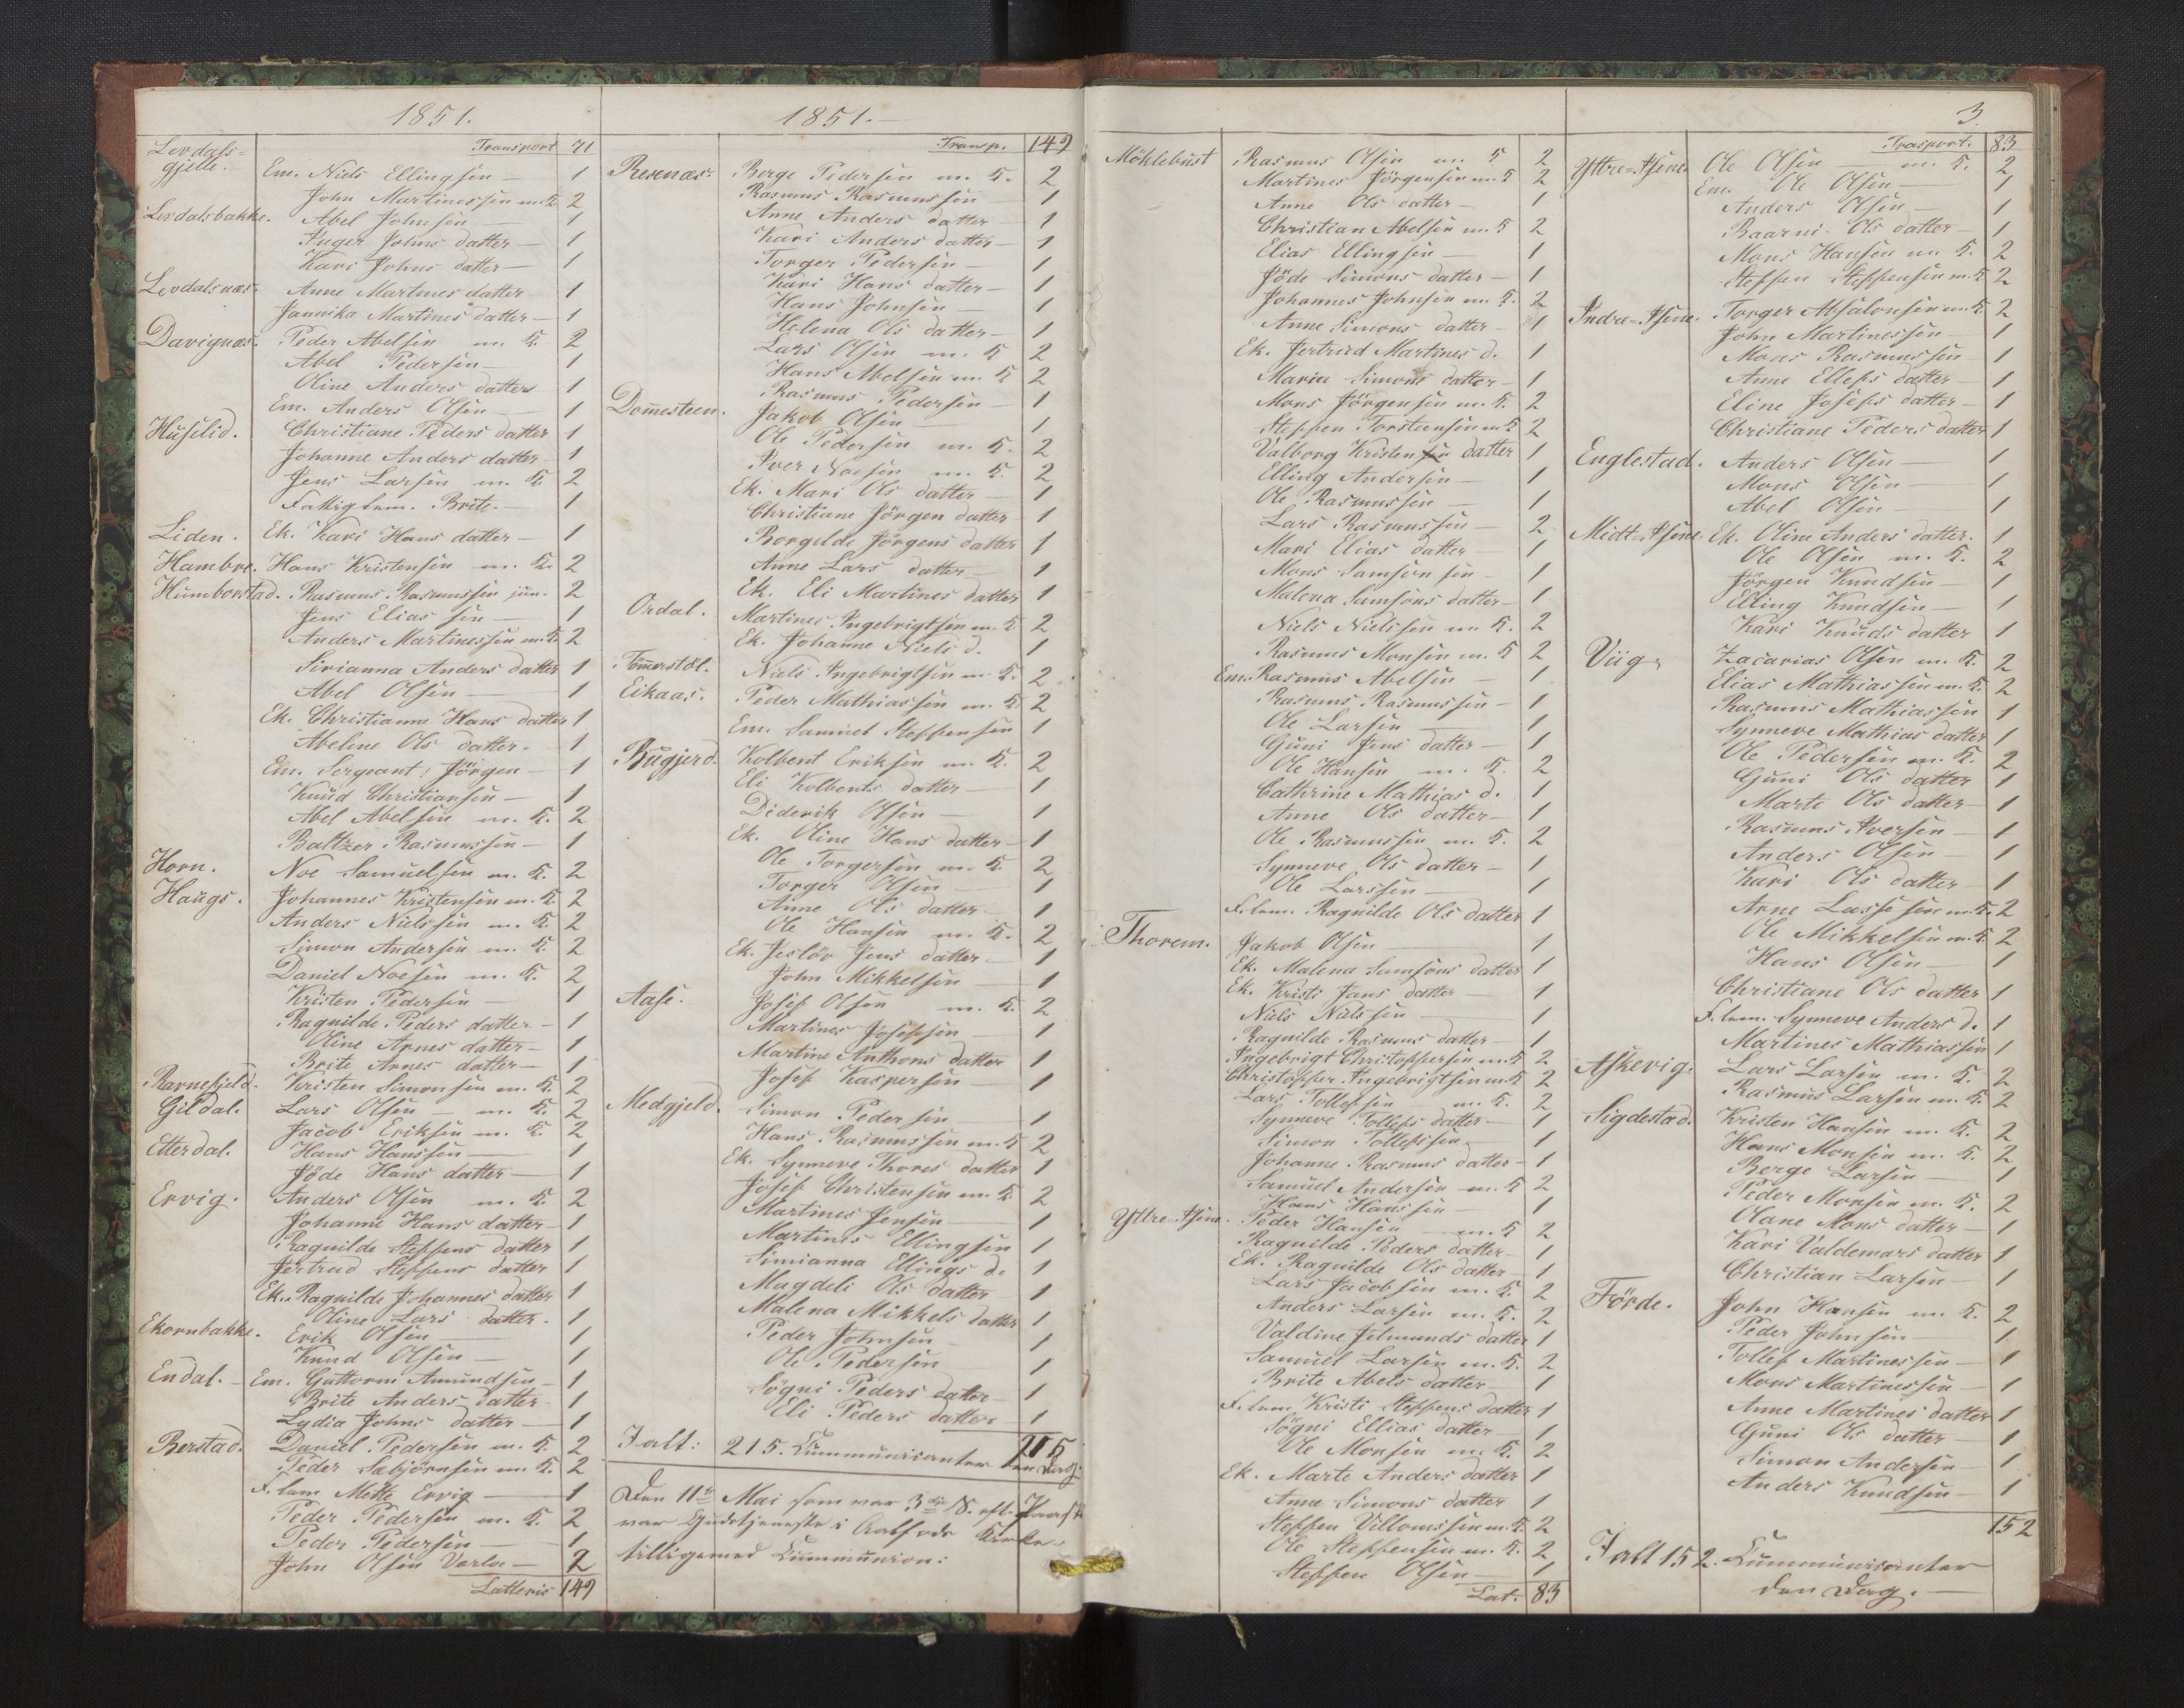 1851.
Transport 71
Levdals=
gjelle. Em. Niels Ellingsen — 1
John Martinessen m. K 2
Levdalsbakke. Abel Johnsen — 1
Inger Johns datter — 1
Kari Johns datter — 1
Levdalsnæs. Anne Martines datter 1
Jannika Martines datter — 1
Davignæs. Peder Abelsen m. K. 2
Abel Pedersen — 1
Oline Anders datter 1
Em. Anders Olsen — 1
Huselid. Christiane Peders datter 1
Johanne Anders datter — 1
Jens Larsen m. K. 2
Fattiglem. Brite. — 1
Liden. Ek. Kari Hans datter — 1
Hambre. Hans Kristensen m. K. 2
Humborstad. Rasmus Rasmussen jun. 2
Jens Eliassen — 1
Anders Martinessen m. K. 2
Sirianna Anders datter 1
Abel Olsen — 1
Ek. Christianne Hans datter 1
Abeline Ols datter. — 1
Em. Sergeant Jörgen — 1
Knud Christiansen — 1
Abel Abelsen m. K. 2
Baltzer Rasmussen — 1
Horn. Noe Samuelsen m. K. 2
Haugs. Johannes Kristensen m. K. 2
Anders Nielssen m. K. 2
Simon Andersen m. K. 2
Daniel Noesen m. K. 2
Kristen Pedersen — 1
Ragnilde Peders datter — 1
Oline Arnes datter — 1
Brite Arnes datter — 1
Ravnefjeld. Kristen Simonsen m. K. 2
Gildal. Lars Olsen — m. K. 2
Jacob Eriksen m. K. 2
Etterdal. Hans Hanssen — 1
Jöde Hans datter — 1
Ervig. Anders Olsen m. K. 2
Johanne Hans datter — 1
Ragnilde Steffens datter 1
Jertrud Steffens datter 1
Ek. Ragnilde Johannes datter 1
Oline Lars datter. 1
Ekornbakke. Erik Olsen — 1
Knud Olsen — 1
Endal. — Em. Guttorm Amundsen — 1
Brite Anders datter 1
Lydia Johns datter — 1
Berstad. Daniel Pedersen m. K. 2
Peder Sæbjörnsen m. K. 2
F. lem Mette Ervig — 1
Peder Pedersen m. K. 2
Peder Pedersen — 1
John Olsen Varloe — 2
Latteris 149
1851. —
Transp. 149
Resenæs. Berge Pedersen m. K. 2
Rasmus Rasmussen 1
Anne Anders datter 1
Kari Anders datter — 1
Torger Pedersen — 1
Kari Hans datter — 1
Hans Johnsen — 1
Helena Ols datter — 1
Lars Olsen m. K 2
Hans Abelsen m. K 2
Rasmus Pedersen — 1
Domesteen. Jakob Olsen — 1
Ole Pedersen m. K. 2
Iver Noesen m. K. 2
Ek. Mari Ols datter — 1
Christiane Jörgen datter 1
Borgilde Jörgens datter 1
Anne Lars datter — 1
Ek. Eli Martines datter 1
Ordal. Martines Ingebrigtsen m. K 2
Ek. Johanne Niels d. 1
Tömmerstöl. Niels Ingebrigtsen m. K. 2
Eikaas. Peder Mathiassen m. K. 2
Em. Samuel Steffensen 1
Rugjerd. Kolbent Eriksen m. K. 2
Eli Kolbents datter — 1
Diderik Olsen — 1
Ek. Oline Hans datter — 1
Ole Torgersen m. K. 2
Torger Olsen — 1
Anne Ols datter — 1
Ole Hansen m. K. 2
Ek. Jeslöv Jens datter — 1
John Mikkelsen — 1
Aase. Josef Olsen m. K. 2
Martines Josefsen — 1
Martine Anthons datter 1
Josef Kaspersen — 1
Medgjeld. Simon Pedersen 1
Hans Rasmussen m. K 2
Ek. Synneve Thores datter 1
Josef Christensen m. K 2
Martines Jensen 1
Martines Ellingsen 1
Simianna Ellings d. 1
Magdeli Ols datter 1
Malena Mikkels datter 1
Peder Johnsen 1
Ole Pedersen 1
Sögni Peders datter — 1
Eli Peders datter — 1
215
Ialt: 215. Kummunicanter den Dag.
Den 11te Mai som var 3die S. eft. Paaske
var Gudstjeneste i Aalfode Kirke
tilligemed Kummunion:
3.
Möklebust Rasmus Olsen m. K 2
Martines Jörgensen m. K 2
Anne Ols datter — 1
Christian Abelsen m. K 2
Elias Ellingsen — 1
Jöde Simons datter — 1
Johannes Johnsen m. K. 2
Anne Simons datter — 1
Ek. Jertrud Martines d. 1
Marie Simons datter — 1
Mons Jörgensen m. K. 2
Steffen Torsteensen m. K 2
Valborg Kristen datter 1
Elling Andersen — 1
Ole Rasmussen — 1
Lars Rasmussen — 2
Mari Elias datter — 1
Mons Samsonsen — 1
Malena Samsons datter — 1
Niels Nielssen m. K. 2
Rasmus Monsen m. K 2
Em. Rasmus Abelsen — 1
Rasmus Rasmussen — 1
Ole Larsen — 1
Guni Jens datter — 1
Ole Hansen m. K. 2
Cathrine Mathias d. 1
Anne Ols datter — 1
Ole Rasmussen m. K. 2
Synneve Ols datter — 1
Ole Larssen — 1
F. lem. Ragnilde Ols datter 1
Thorem. Jakob Olsen — 1
Ek. Malena Samsons datter 1
Ek. Kristi Jans datter — 1
Niels Nielssen — 1
Ragnilde Rasmus datter — 1
Ingebrigt Christoffersen m. K 2
Christoffer Ingebrigtsen m. K 2
Lars Tollefsen m. K. 2
Synneve Tollefs datter — 1
Simon Tollefsen — 1
Johanne Rasmus datter — 1
Samuel Andersen m. K 2
Hans Hanssen — 1
Yttre=Hsene. Peder Hansen m. K 2
Ragnilde Peders datter — 1
Ek. Ragnilde Ols datter — 1
Lars Jacobsen m. K. 2
Anders Larsen m. K. 2
Valdine Jetmunds datter 1
Samuel Larsen m. K. 2
Brite Abels datter — 1
F. lem Kristi Steffens datter 1
Sögni Ellias datter — 1
Ole Monsen m. K. 2
Ek. Marte Anders datter 1
Anne Simons datter 1
Steffen Villomssen m. K. 2
Ole Steffensen m. K. 2
Steffen Olsen — 1
Lat. 83
Trasport. 83
Yttre=Hsene Ole Olsen m. K. 2
Em. Ole Olsen — 1
Anders Olsen — 1
Baarni Ols datter — 1
Mons Hansen m. K. 2
Steffen Steffensen m. K 2
Indre=Hsene. Torger Absalonsen m. K 2
John Martinessen — 1
Mons Rasmussen — 1
Anne Ellefs datter — 1
Eline Josefs datter — 1
Christiane Peders datter 1
Englestad. Anders Olsen — 1
Mons Olsen — 1
Abel Olsen — 1
Midt=Hsene. Ek. Oline Anders datter. 1
Ole Olsen m. K. 2
Jörgen Knudsen — 1
Elling Knudsen — 1
Kari Knuds datter 1
Viig. Zacarias Olsen m. K. 2
Elias Mathiassen m. K. 2
Rasmus Mathiassen 1
Synneve Mathias datter 1
Ole Pedersen m. K. 2
Guni Ols datter 1
Marte Ols datter 1
Rasmus Iversen — 1
Anders Olsen — 1
Kari Ols datter — 1
Arne Lassesen m. K. 2
Ole Mikkelsen m. K. 2
Hans Olsen — 1
Christiane Ols datter 1
F. lem. Synneve Anders d. 1
Martines Mathiassen 1
Askevig. Lars Larsen m. K. 2
Rasmus Larsen m. K 2
Sigdestad. Kristen Hansen m. K. 2
Hans Monsen m. K. 2
Berge Larsen — 1
Peder Monsen m. K. 2
Olane Mons datter — 1
Kari Valdemars datter 1
Christian Larsen 1
Förde. John Hansen m. K. 2
Peder Johnsen — 1
Tollef Martinessen — 1
Mons Martinessen — 1
Anne Martines datter 1
Guni Ols datter — 1
Simon Andersen — 1
Anders Knudsen — 1
152
Ialt 152. Kummunicanter
den Dag. —